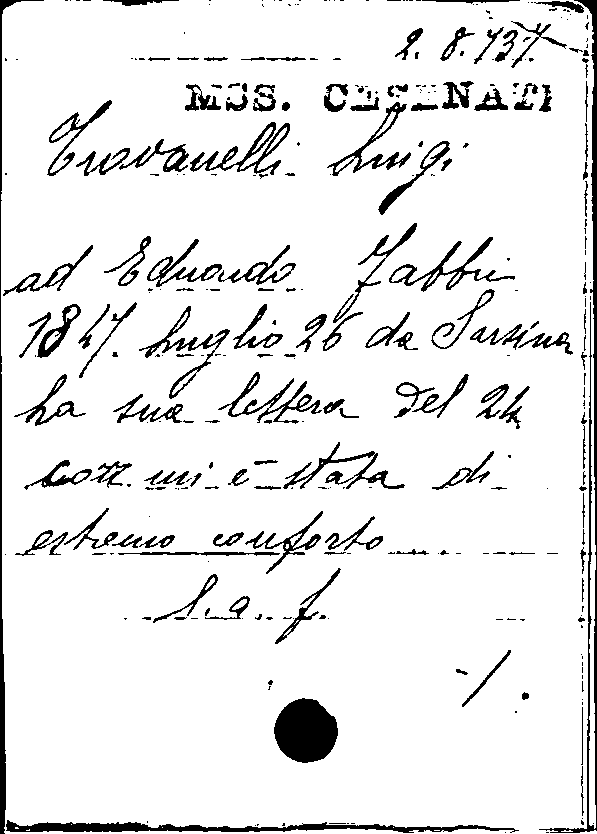 2. 8. 737.
MSS. CESENATI
Travanelli Luigi
ad Eduardo Fabbri
1847. Luglio 26 da Sarsina
La sua lettera del 24
corr. mi è stata di
estremo conforto ....
l. a. f.
-/.